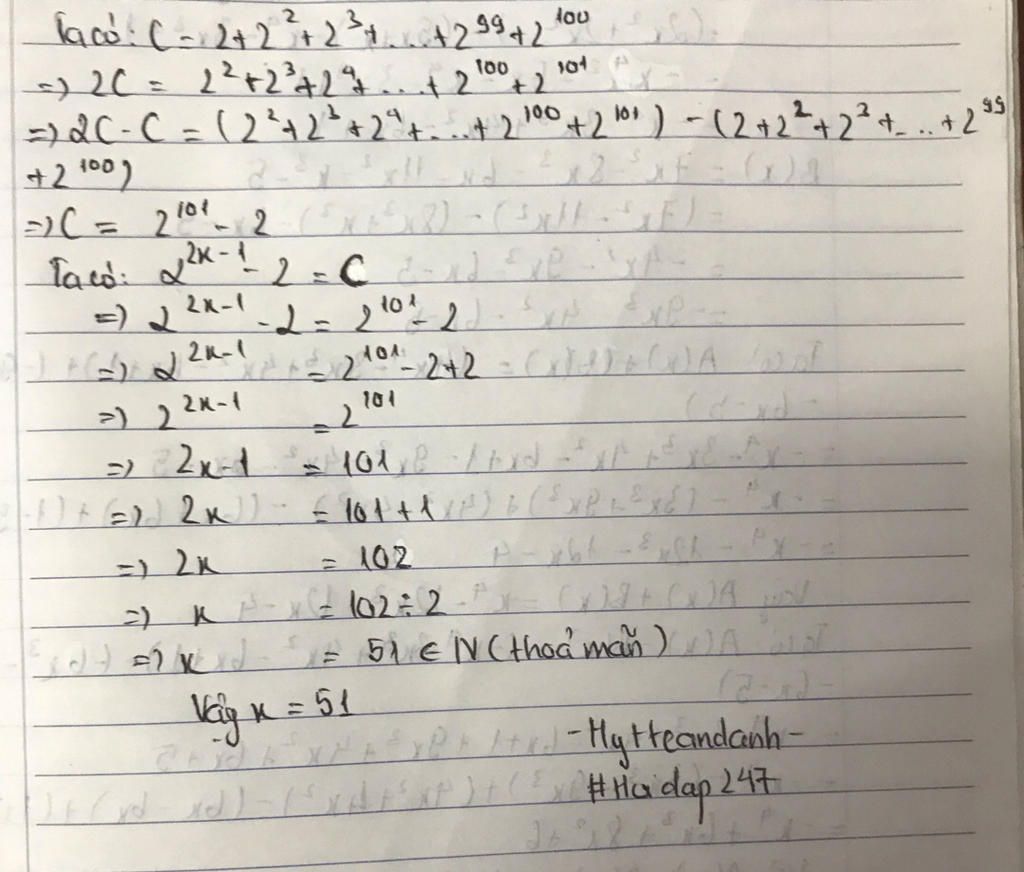 Ta có: C = 2+2²+2³+...+2⁹⁹+2¹⁰⁰
=> 2C = 2²+2³+2⁴+...+2¹⁰⁰+2¹⁰¹
=> 2C-C = (2²+2³+2⁴+...+2¹⁰⁰+2¹⁰¹) - (2+2²+2³+...+2⁹⁹
+2¹⁰⁰)
=> C = 2¹⁰¹ - 2
Ta có: 2²ˣ⁻¹ - 2 = C
=> 2²ˣ⁻¹ - 2 = 2¹⁰¹ - 2
=> 2²ˣ⁻¹ = 2¹⁰¹ - 2+2
=> 2²ˣ⁻¹ = 2¹⁰¹
=> 2x-1 = 101
=> 2x = 101+1
=> 2x = 102
=> x = 102÷2
=> x = 51 ∈ N (thoả mãn)
Vậy x = 51
#Hoidap247